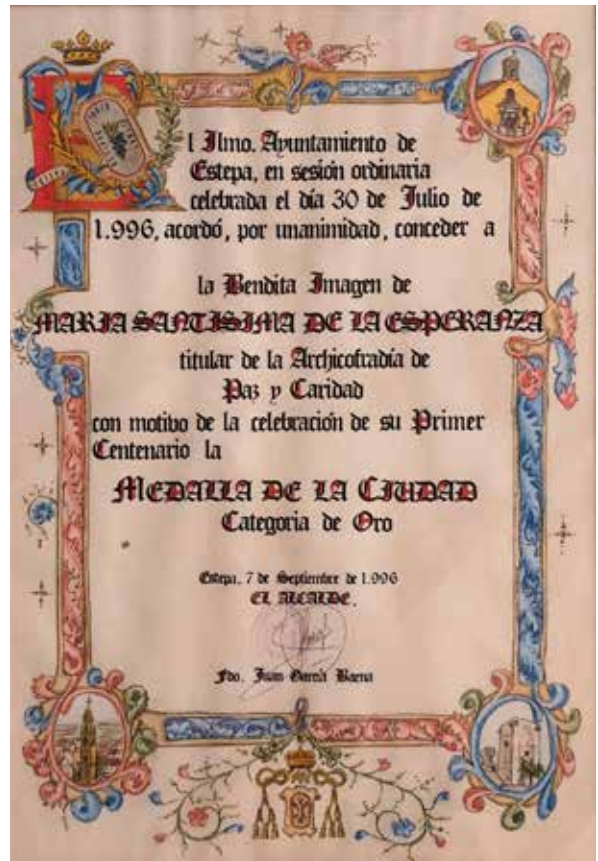 El Ilmo. Ayuntamiento de
Estepa, en sesión ordinaria
celebrada el día 30 de Julio de
1.996, acordó, por unanimidad, conceder a
la Bendita Imagen de
MARIA SANTISIMA DE LA ESPERANZA
titular de la Archicofradía de
Paz y Caridad
con motivo de la celebración de su Primer
Centenario la
MEDALLA DE LA CIUDAD
Categoria de Oro
Estepa, 7 de Septiembre de 1.996
EL ALCALDE.
Fdo. Juan García Baena